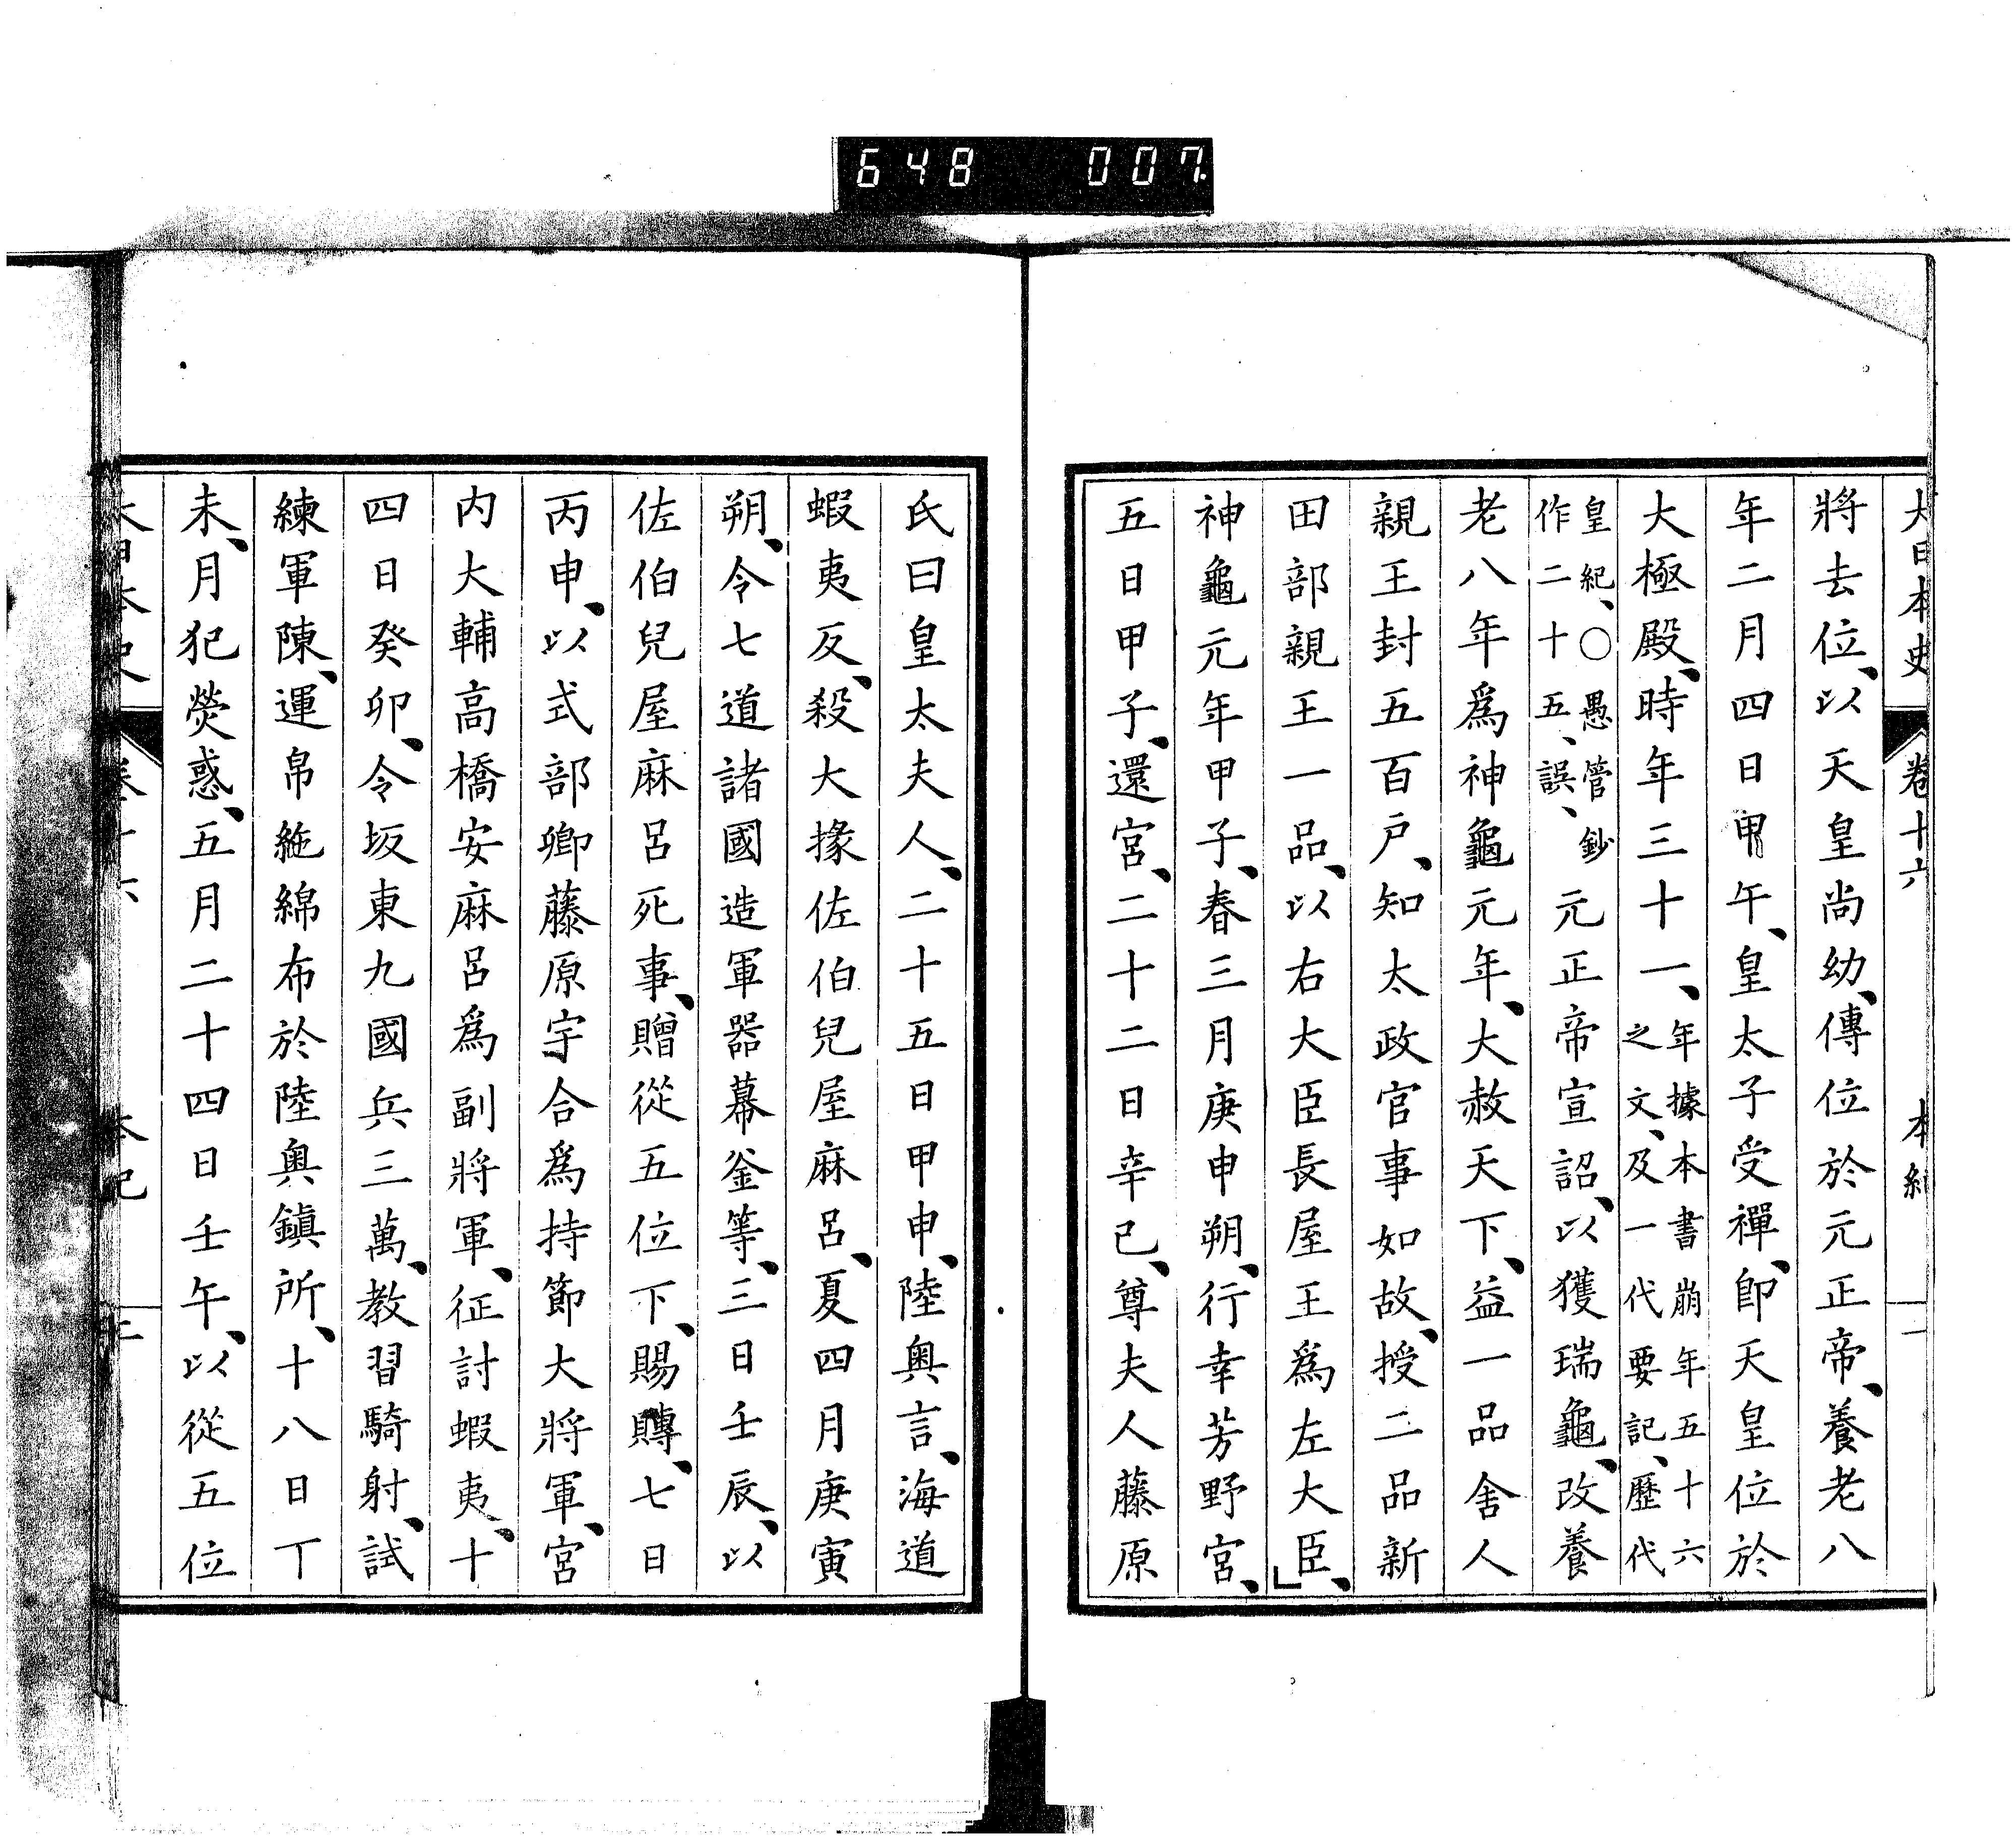 648 007
大日本史 卷十六 本紀 一
將去位、以天皇尚幼、傳位於元正帝、養老八
年二月四日甲午、皇太子受禪、卽天皇位於
大極殿、時年三十一、年據本書崩年五十六之文、及一代要記、歷代
皇紀、〇愚管鈔作二十五、誤、元正帝宣詔、以獲瑞龜、改養
老八年爲神龜元年、大赦天下、益一品舍人
親王封五百戶、知太政官事如故、授二品新
田部親王一品、以右大臣長屋王爲左大臣、
神龜元年甲子、春三月庚申朔、行幸芳野宮、
五日甲子、還宮、二十二日辛巳、尊夫人藤原
氏曰皇太夫人、二十五日甲申、陸奥言、海道
蝦夷反、殺大掾佐伯兒屋麻呂、夏四月庚寅
朔、令七道諸國造軍器幕釜等、三日壬辰、以
佐伯兒屋麻呂死事、贈從五位下、賜賻、七日
丙申、以式部卿藤原宇合爲持節大將軍、宮
内大輔高橋安麻呂爲副將軍、征討蝦夷、十
四日癸卯、令坂東九國兵三萬、教習騎射、試
練軍陳、運帛絁綿布於陸奥鎮所、十八日丁
未、月犯熒惑、五月二十四日壬午、以從五位
大日本史 卷十六 本紀 二